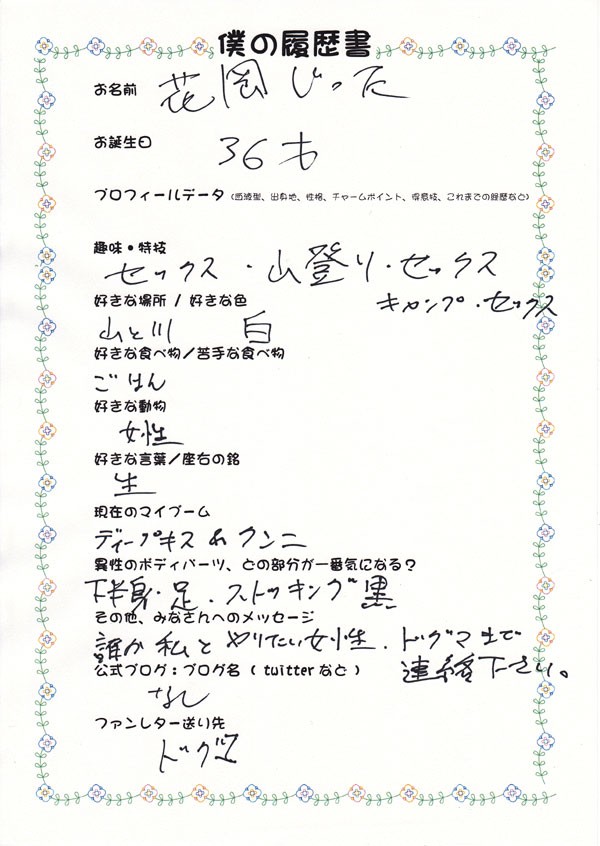 僕の履歴書
お名前 花岡じった
お誕生日 36才
プロフィールデータ（血液型、出身地、性格、チャームポイント、得意技、これまでの経歴など）
趣味・特技
セックス・山登り・セックス
キャンプ・セックス
好きな場所 / 好きな色
山と川 白
好きな食べ物／苦手な食べ物
ごはん
好きな動物
女性
好きな言葉／座右の銘
生
現在のマイブーム
ディープキス & クンニ
異性のボディパーツ、どの部分が一番気になる？
下半身・足・ストッキング黒
その他、みなさんへのメッセージ
誰か私とやりたい女性．ドグマまで
連絡下さい。
公式ブログ：ブログ名（twitterなど）
なし
ファンレター送り先
ドグマ